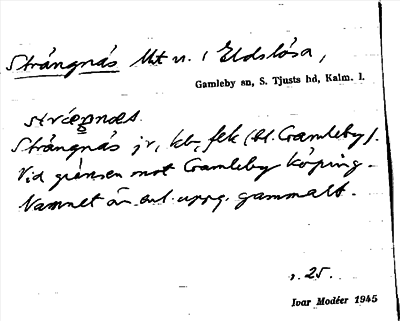 Strångnäs Ut n. i Eldslösa,
Gamleby sn, S. Tjusts hd, Kalm. l.
Strångnäs jv, kb, fek (bl. Gamleby).
Vid gränsen mot Gamleby köping.
Namnet är enl. uppg. gammalt.
s. 25.
Ivar Modéer 1945